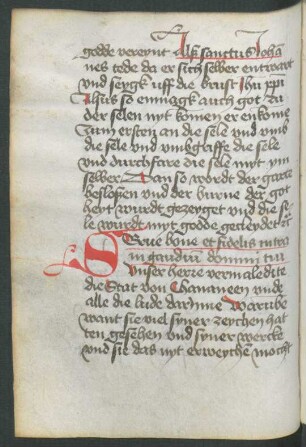 godde vereynt Alß sanctus Joha
nes tede da er sich selber entwart
vnd seygk vff die brust Jhu xpi
Jhus so enmagk auch got zu
der selen nyt komen er en kome
zum ersten an die sele vnd vmb
die sele vnd vmbgriffe die sele
vnd durchfare die sele myt ym
selber Dan so wordt der garte
beslossen vnd der burne der got
heyt wurdt gezeyget vnd die se
le wurdt myt godde gecleydet
Serue bone et fidelis intra
in gaudiu domini tui
vnser herre vermaledite
die Stat von Chananeen vnde
alle die lude darinne Warube
want sie viel syner zeychen hat
ten gesehen vnd syner wercke
vnd sie das nyt erweychen mocht